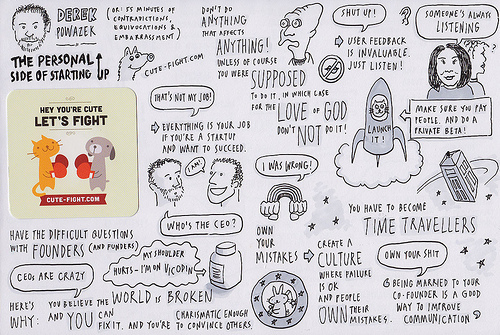 DEREK
POWAZEK
(OR: 55 MINUTES OF
CONTRADICTIONS,
EQUIVOCATIONS &
EMBARRASSMENT)
THE PERSONAL
SIDE OF STARTING UP
CUTE-FIGHT.COM
HEY YOU'RE CUTE
LET'S FIGHT
CUTE-FIGHT.COM
DON'T DO
ANYTHING
THAT AFFECTS
ANYTHING!
UNLESS OF COURSE
YOU WERE SUPPOSED
TO DO IT, IN WHICH CASE
FOR THE LOVE OF GOD
DON'T NOT DO IT!
SHUT UP!
USER FEEDBACK
IS INVALUABLE.
JUST LISTEN!
SOMEONE'S ALWAYS
LISTENING
?
LAUNCH
IT!
MAKE SURE YOU PAY
PEOPLE. AND DO A
PRIVATE BETA!
THAT'S NOT MY JOB!
EVERYTHING IS YOUR JOB
IF YOU'RE A STARTUP
AND WANT TO SUCCEED.
I AM!
WHO'S THE CEO?
HAVE THE DIFFICULT QUESTIONS
WITH FOUNDERS (AND FUNDERS)
CEOs ARE CRAZY
MY SHOULDER
HURTS - I'M ON VICODIN
HERE'S
WHY:
YOU BELIEVE THE WORLD IS BROKEN
AND YOU CAN
FIX IT. AND YOU'RE
CHARISMATIC ENOUGH
TO CONVINCE OTHERS.
I WAS WRONG!
OWN
YOUR
MISTAKES
CREATE A
CULTURE
WHERE FAILURE
IS OK
AND PEOPLE
OWN THEIR
MISTAKES.
YOU HAVE TO BECOME
TIME TRAVELLERS
OWN YOUR SHIT
BEING MARRIED TO YOUR
CO-FOUNDER IS A GOOD
WAY TO IMPROVE
COMMUNICATION